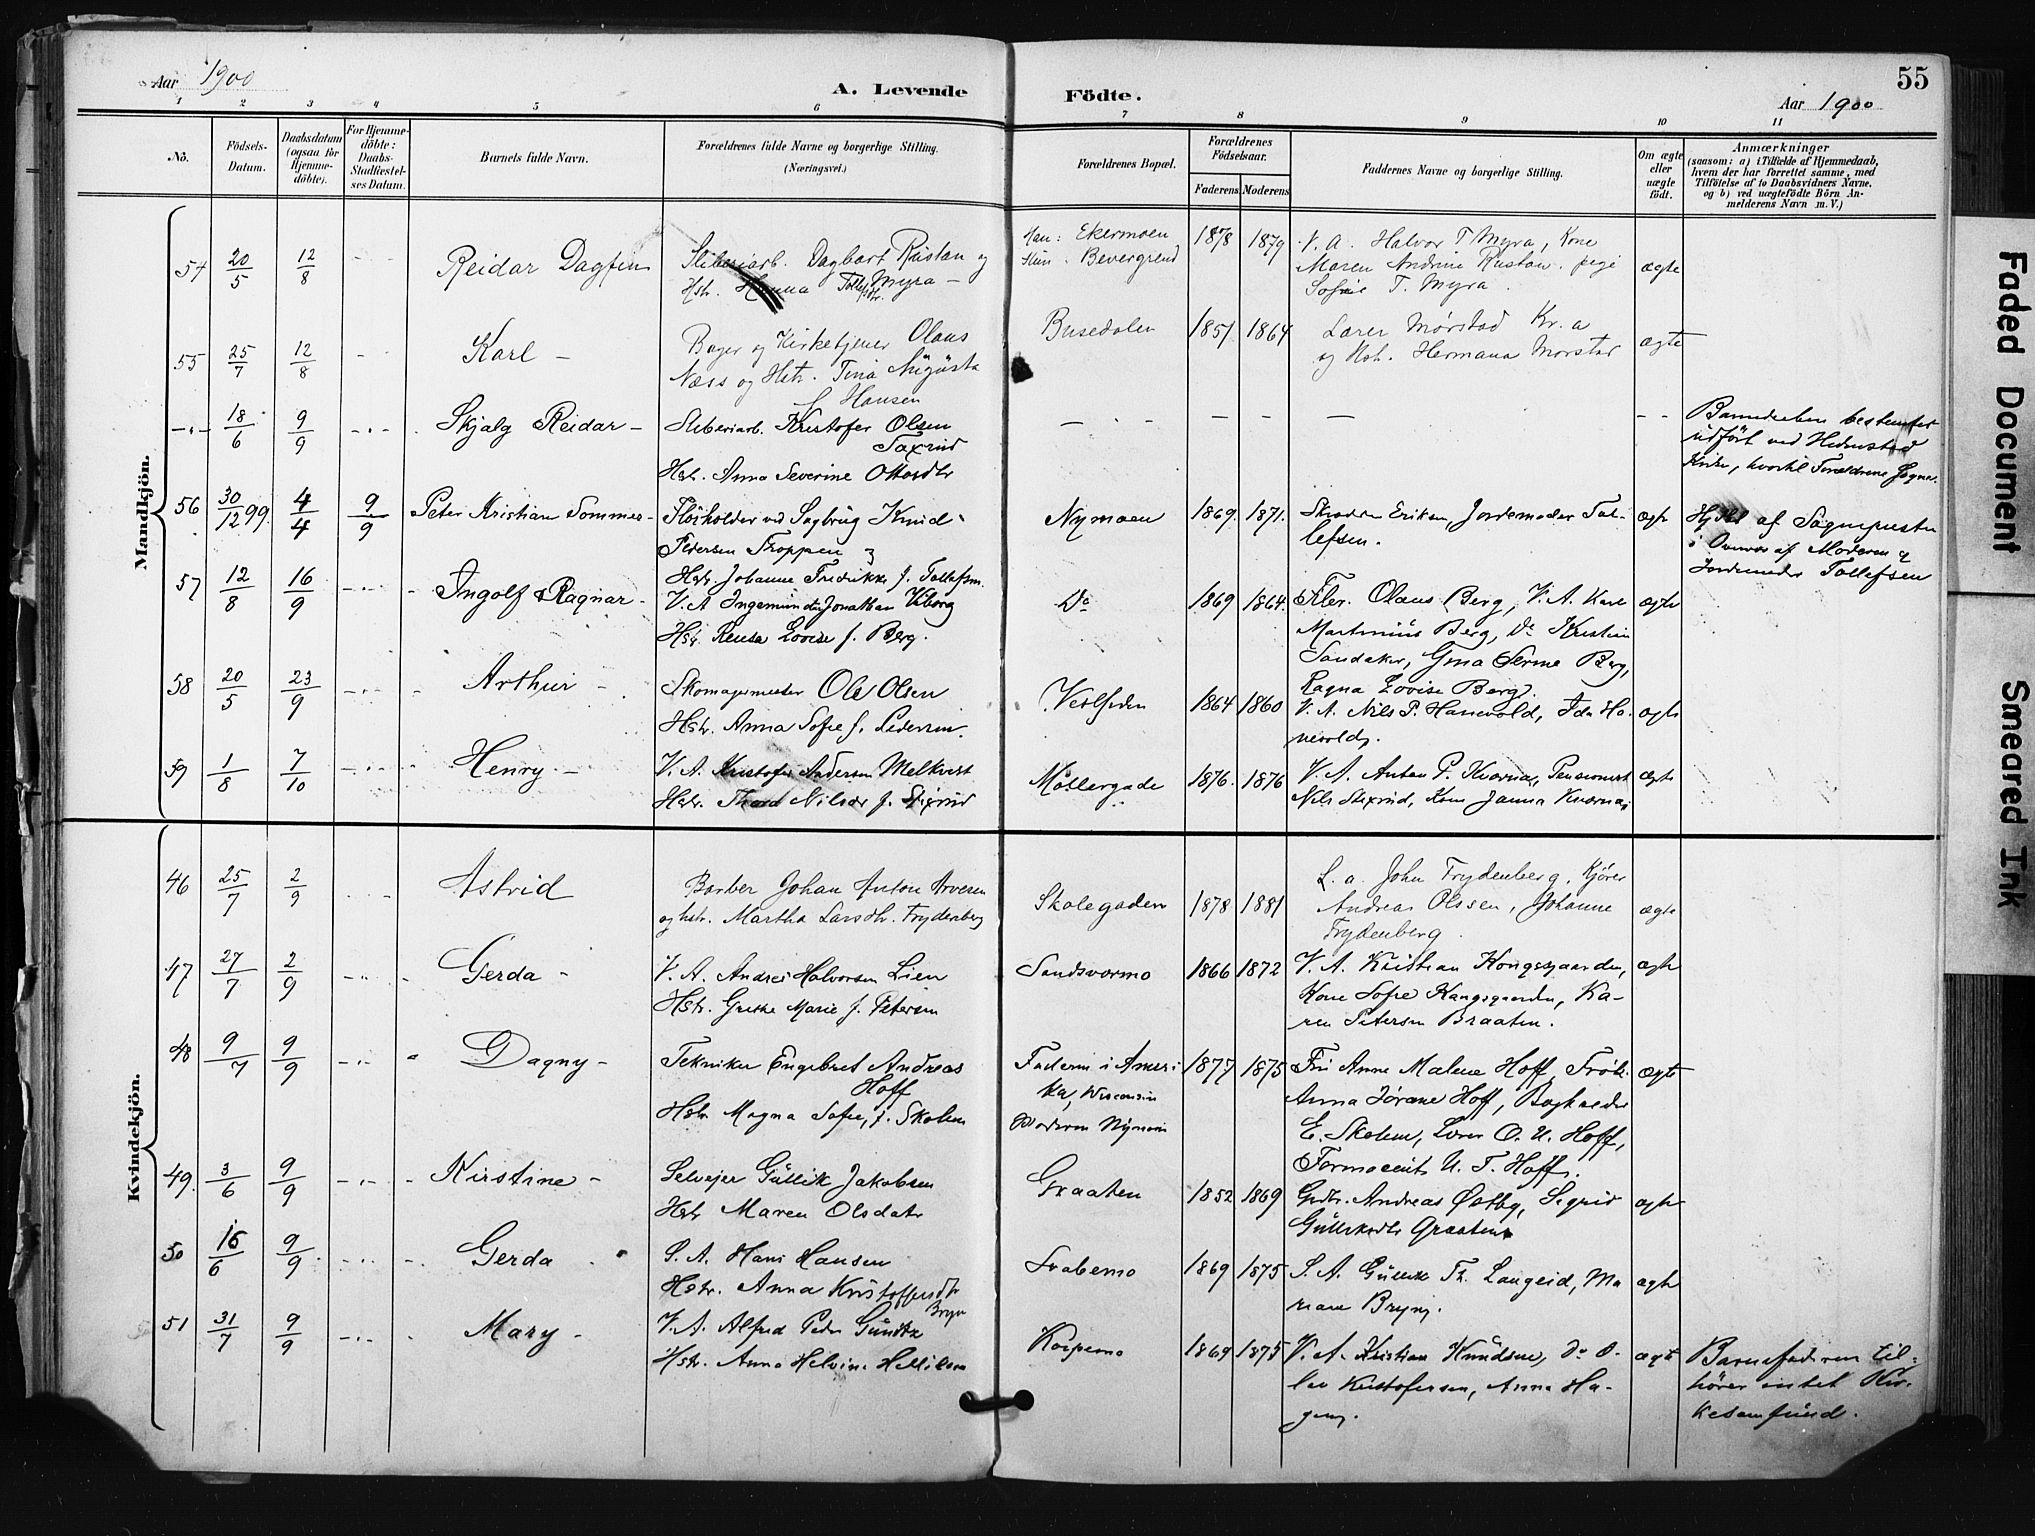 Aar 1900
A. Levende
Födte.
55
Aar 1900
1 2 3 4 5 6 7 8 9 10 11
No.
Födsels-Datum.
Daabsdatum (ogsaa for Hjemme-döbte).
For Hjemme-döbte: Daabs-Stadfæstel-ses Datum.
Barnets fulde Navn.
Forældrenes fulde Navne og borgerlige Stilling.
(Næringsvei.)
Forældrenes Bopæl.
Forældrenes Födselsaar.
Faderens Moderens
Faddernes Navne og borgerlige Stilling.
Om ægte eller uægte födt.
Anmærkninger
(saasom: a) i Tilfælde af Hjemmedaab,
hvem der har forrettet samme, med
Tilföielse af to Daabsvidners Navne,
og b) ved uægtefödte Börn An-
melderens Navn m. V.)
Mandkjön.
54 20/5 12/8 Reidar Dagfin
Sliberiarb. Dagbart Rustan og
Hstr. Hanna Tollefsdtr. Myra —
Han: Ekermoen
Hun: Bevergrend
1878 1879
V. A. Halvor T Myra, Kone
Maren Andrine Rustan, pige
Sofie T. Myra.
ægte
55 25/7 12/8 Karl —
Bager og Kirketjener Olaus
Næss og Hstr. Tina Augusta
f Hansen
Busedalen 1851 1864
Lærer Mørstad Kr.a
og Hst. Hermana Morstad
ægte
—"— 18/6 9/9 Skjalg Reidar —
Sliberiarb. Kristofer Olsen
Saxrud
Hstr. Anna Severine Ottosdtr
udført ved Hedenstad
Kirke, hvortil Forældrene sogne.
56 30/12 99. 4/4 9/9 Peter Kristian Sommer —
Flörholder ved Sagbrug Knud
Pedersen Troppen og
Hstr. Johanne Fredrikke f. Tollefsen
Nymoen 1869. 1871.
Skrædder Eriksen, Jordemoder Tol-
lefsen.
ægte
Hjdbt af Sognepresten
i Overvær af Moderen og
Jordemoder Tollefsen
57 12/8 16/9 Ingolf Ragnar —
V. A Ingemund Jonathan Viborg
Hstr. Rensa Lovise f. Berg.
Do 1869 1864.
Olaus Berg, V. A. Karl
Martinius Berg, Do Kristian
Sandaker, Gina Berg,
Ragna Lovise Berg.
ægte
58 20/5 23/9 Arthur —
Skomagermester Ole Olsen
Hstr. Anna Sofie f. Pedersen.
Vestsiden 1864 1860
V. A. Nils P. Hanevold, Ida Ha-
nevold.
ægte
59 1/8 7/10 Henry —
V. A. Kristofer Andersen Melkvist
Hstr. Thora Nilsdr f. Stixrud
Möllergade 1876. 1876
V. A. Anton P. Kværnaas, Pensionist
Nils Stixrud, Kone Janna Kværnaas
ægte
Kvindekjön.
46 25/7 2/9 Astrid
Barber Johan Anton Arvesen
og hstr. Martha Larsdtr. Frydenberg
Skolegaden 1878 1881
L. a. John Frydenberg, Kjører
Andreas Olssen, Johanne
Frydenberg.
ægte
47 27/7 2/9 Gerda —
V. A. Andreas Halvorsen Lien
Hstr. Grethe Marie f. Petersen
Sandsværmo 1866 1872
V. A. Kristian Kongsgaarden,
Kone Sofie Kongsgaarden, Ka-
ren Petersen Braaten.
ægte
48 9/7 9/9 Dagny —
Tekniker Engebret Andreas
Hoff
Hstr Magna Sofie, f. Skolem
Faderen i Ameri-
ka, Wisconsin
Moderen Nymoen
1877 1875
Fru Anne Malene Hoff, Frök.
Anna Jörane Hoff, Boghandler
E. Skolem, Lærer O. U. Hoff,
Farmaceut U. T. Hoff.
ægte
49. 3/6 9/9 Kirstine —
Selveier Gullik Jakobsen
Hstr Maren Olsdatr
Graaten 1852 1869
Grdbr. Andreas Østby, Sigrid
Gulliksdtr Graaten.
ægte
50 16/6 9/9 Gerda
S. A. Hans Hansen
Hstr. Anna Kristoffersdtr
Bryn
Svabemo 1869 1875
S. A. Gullik Th. Langeid, Ma
riane Bryn.
ægte
51 31/7 9/9 Mary —
V. A. Alfred Peder Gundtz
Hstr. Anna Helvine Helliksen
Korpemo 1869 1875
V. A. Kristian Knudsen, do O-
lav Kristofersen, Anna Ha-
gen.
ægte
Barnefaderen til-
hører intet Kir-
kesamfund.
Faded Document
Smeared Ink